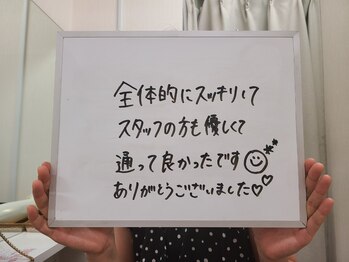 全体的にスッキリして
スタッフの方も優しくて
通って良かったです
ありがとうございました♡♡